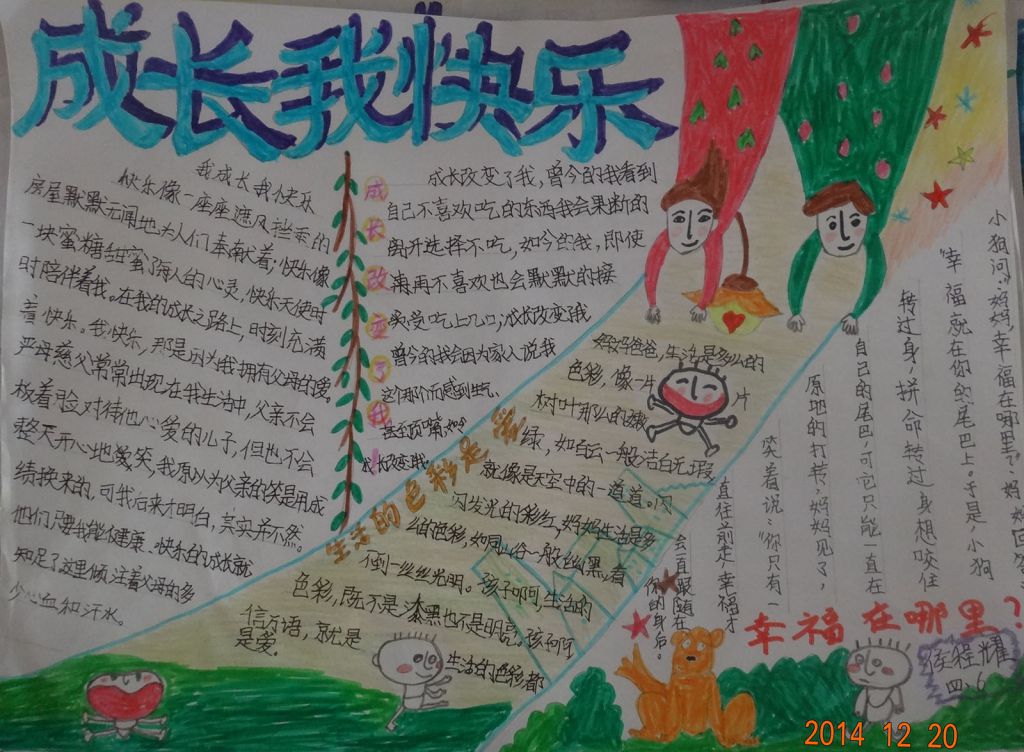 成长我快乐
我成长我快乐
快乐像一座座遮风挡雨的
房屋默默无闻地为人们奉献着;快乐像
一块蜜糖甜蜜了每人的心灵,快乐天使时
时陪伴着我。在我的成长之路上,时刻充满
着快乐。我快乐,那是因为我拥有父母的爱。
严母慈父常常出现在我生活中,父亲不会
板着脸对待他心爱的儿子,但也不会
整天开心地傻笑,我原以为父亲的笑是用成
绩换来的,可我后来才明白,其实并不然。
他们只要我能健康、快乐的成长就
知足了这里倾注着父母的多
少心血和汗水。
成长改变了我
成长改变了我,曾今的我看到
自己不喜欢吃的东西我会果断的
离开选择不吃,如今的我,即使
再不喜欢也会默默的接
受吃上几口,成长改变了我
曾今的我会因为家人说我
这个那个而感到生气
成长改变我
生活的色彩是
妈妈爸爸,生活是多么的
色彩,像一片片
树叶那么的嫩
绿,如白云一般洁白无瑕
就像是天空中的一道道闪
闪发光的彩虹,妈妈生活是多
么的色彩,如同山谷一般幽黑,看
不到一丝丝光明。孩子啊,生活的
色彩,既不是漆黑也不是明亮。孩子啊
生活的色彩,都
是爱。
幸福在哪里?
小狗问:妈妈,幸福在哪里?妈妈回答:
幸福就在你的尾巴上。于是小狗
转过身,拼命转过身想咬住
自己的尾巴,可它只能一直在
原地的打转,妈妈见了,
笑着说:“你只有一
直往前走,幸福才
会一直跟随在
你的身后。
程耀
四、6
2014 12 20